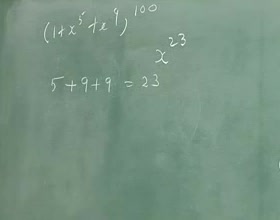 (1+x⁵+x⁹)¹⁰⁰
x²³
5+9+9 = 23